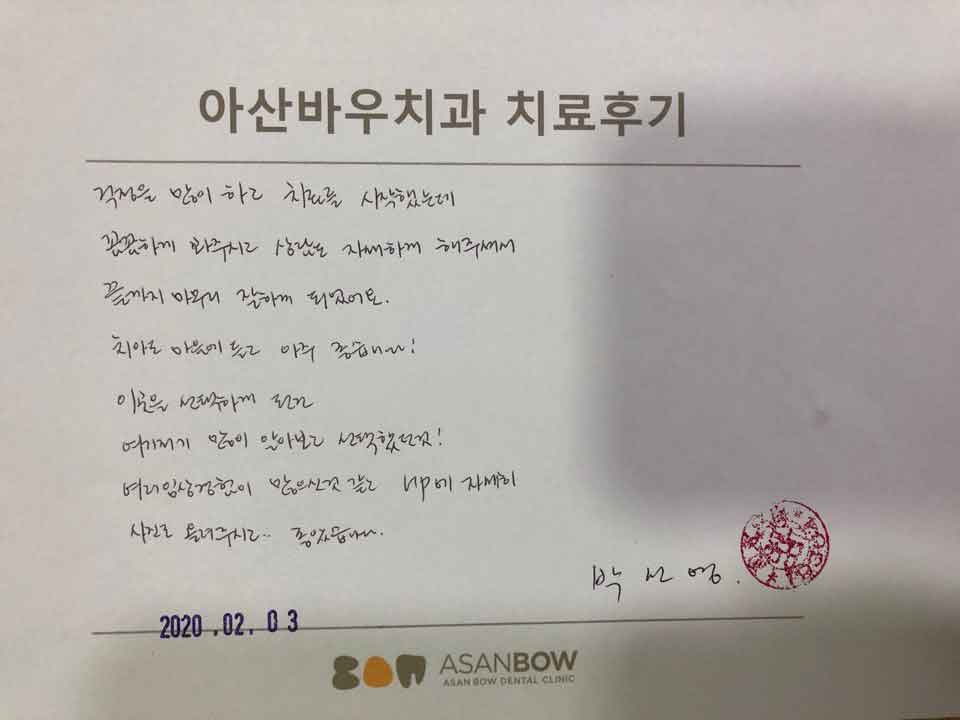 아산바우치과 치료후기
걱정을 많이 하고 치료를 시작했는데
꼼꼼하게 봐주시고 상담도 자세하게 해주셔서
끝까지 마무리 잘하게 되었어요.
치아도 마음에 들고 아주 좋습니다!
이곳을 선택하게 된건
여기저기 많이 알아보고 선택했던것!
여러임상경험이 많으신것 같고 HP에 자세히
사진도 올려주시고.. 좋았습니다.
박선영.
2020.02.03
ASANBOW
ASAN BOW DENTAL CLINIC